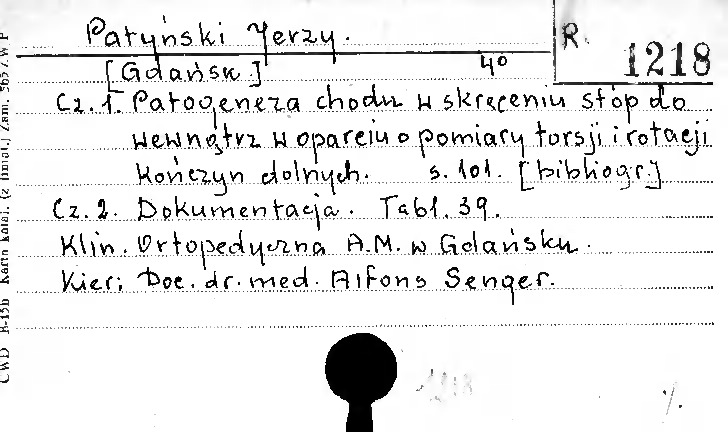 Patyński Jerzy.
R. 1218
[Gdańsk.] 4°
Cz. 1. Patogeneza chodu w skręceniu stóp do
wewnątrz w oparciu o pomiary torsji i rotacji
kończyn dolnych. s. 101. [bibliogr.]
Cz. 2. Dokumentacja. Tabl. 39.
Klin. Ortopedyczna A.M. w Gdańsku.
Kier: Doc. dr. med. Alfons Senger.
1218
CWD B-15b Karta katal. Zam. 565/WP